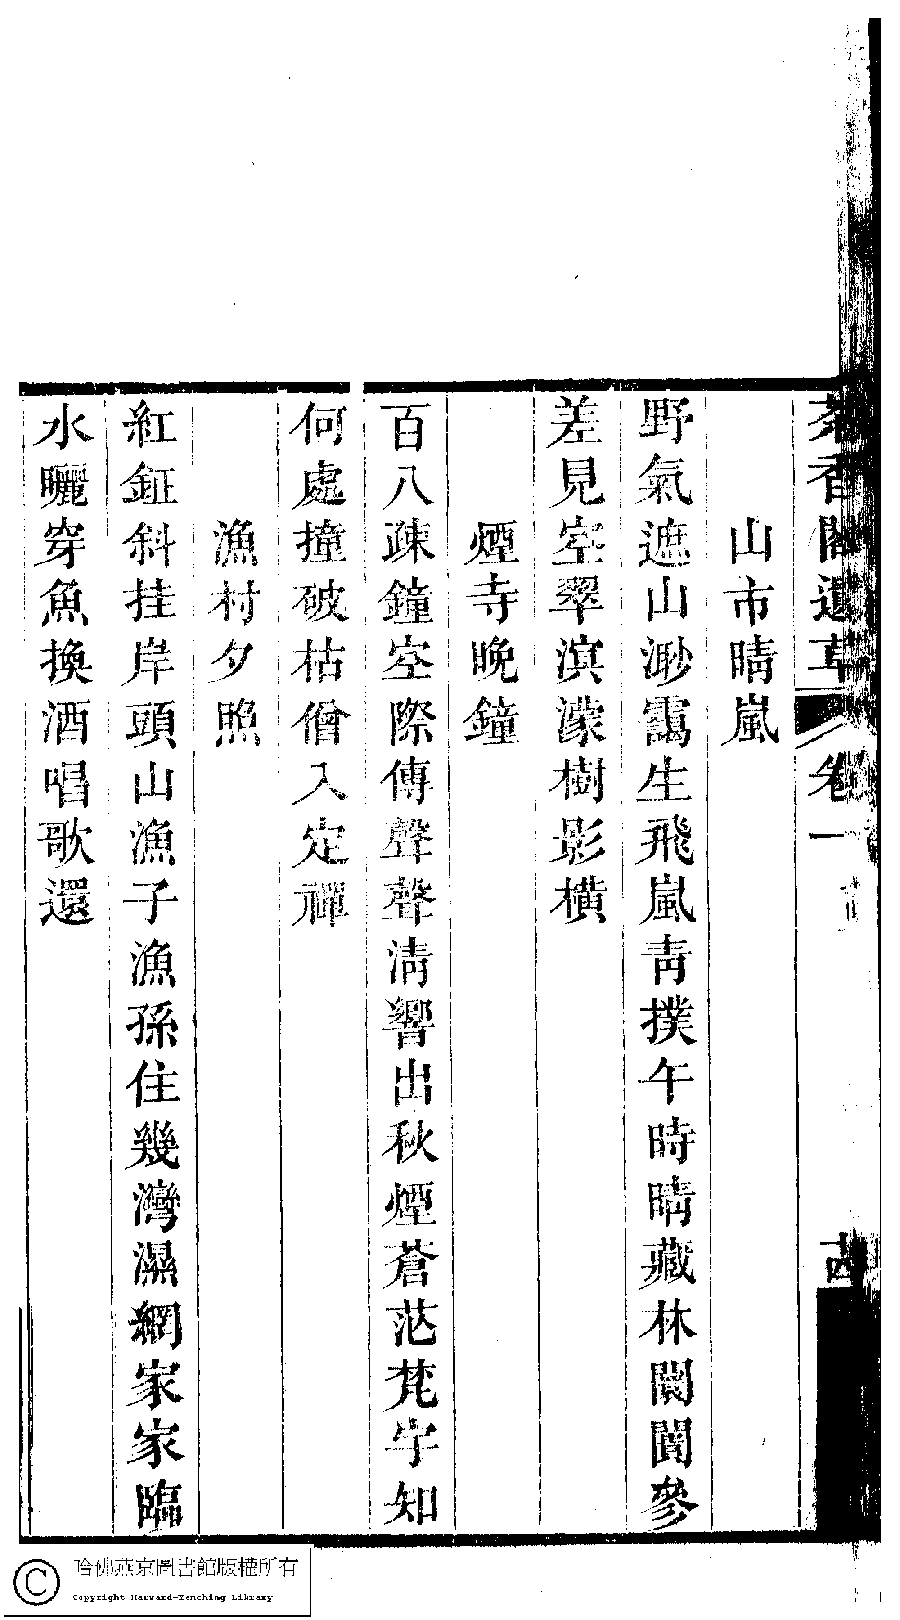 茶香閣遺草 卷一 茜
山市晴嵐
野氣遮山渺靄生飛嵐靑撲午時晴藏林闤闠參
差見空翠溟濛樹影橫
煙寺晚鐘
百八疎鐘空際傳聲聲淸響出秋煙蒼茫梵宇知
何處撞破枯僧入定禪
漁村夕照
紅鉦斜挂岸頭山漁子漁孫住幾灣濕網家家臨
水曬穿魚換酒唱歌還
哈佛燕京圖書館版權所有
Copyright Harvard-Yenching Library